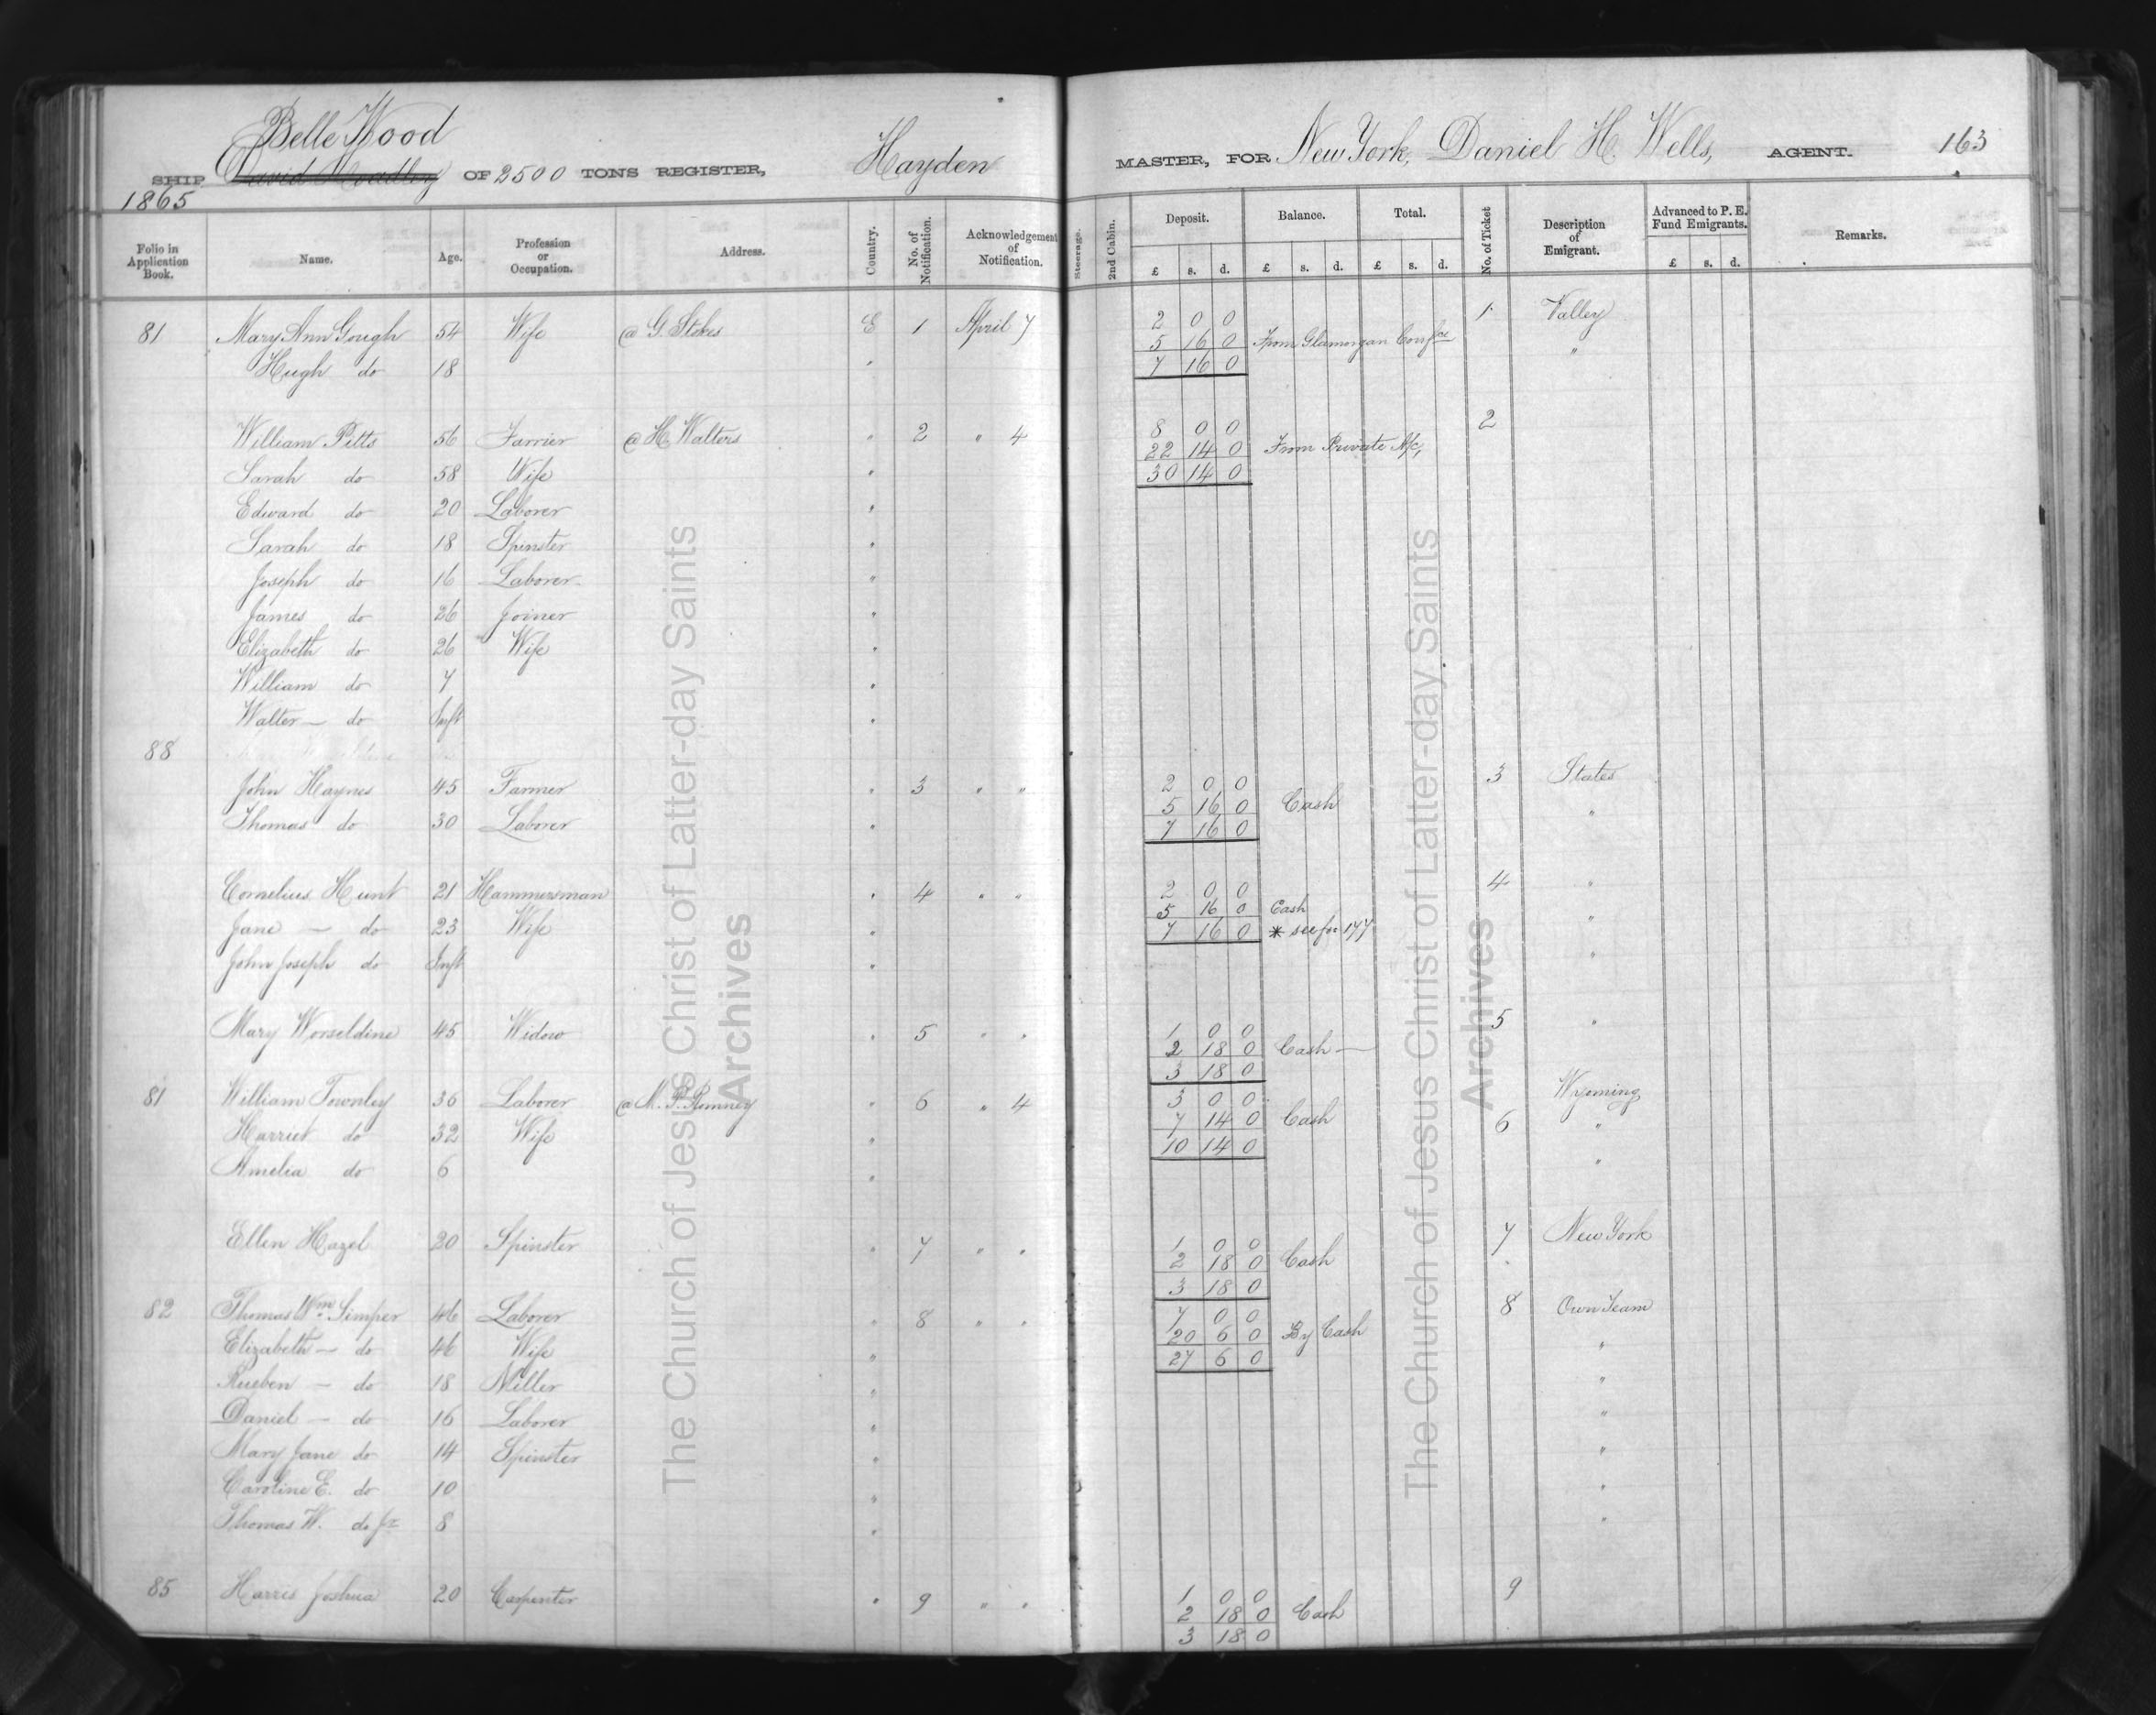 Belle Wood
SHIP David Hoadley OF 2500 TONS REGISTER, Hayden MASTER, FOR New York, Daniel H. Wells, AGENT. 163
1865
Folio in Application Book. Name. Age. Profession or Occupation. Address. Country. No. of Notification. Acknowledgement of Notification. Steerage. 2nd Cabin. Deposit. Balance. Total. No. of Ticket Description of Emigrant. Advanced to P. E. Fund Emigrants. Remarks.
£ s. d. £ s. d. £ s. d. £ s. d.
81 Mary Ann Gough 54 Wife @ G. Stokes E 1 April 7 2 0 0 1 Valley
5 16 0 From Glamorgan Confce
Hugh do 18 " 7 16 0 "
William Pitts 56 Farrier @ H. Walters " 2 " 4 8 0 0 2
22 14 0 From Private A/c,
Sarah do 58 Wife " 30 14 0
Edward do 20 Laborer "
Sarah do 18 Spinster "
Joseph do 16 Laborer "
James do 26 Joiner "
Elizabeth do 26 Wife "
William do 7 "
Walter — do Inft "
88
John Haynes 45 Farmer " 3 " " 2 0 0 3 States
5 16 0 Cash
Thomas do 30 Laborer " 7 16 0 "
Cornelius Hunt 21 Hammersman " 4 " " 2 0 0 4 "
5 16 0 Cash
Jane — do 23 Wife " 7 16 0 * see fo 177 "
John Joseph do Inft " "
Mary Worseldine 45 Widow " 5 " " 1 0 0 5 "
2 18 0 Cash —
3 18 0
81 William Townley 36 Laborer @ M. P. Romney " 6 " 4 3 0 0 Wyoming
7 14 0 Cash
Harriet do 32 Wife " 10 14 0 6 "
Amelia do 6 " "
Ellen Hazel 20 Spinster " 7 " " 1 0 0 7 New York
2 18 0 Cash
3 18 0
82 Thomas Wm Simper 46 Laborer " 8 " " 7 0 0 8 Own Team
20 6 0 By Cash
Elizabeth — do 46 Wife " 27 6 0 "
Rueben — do 18 Miller " "
Daniel — do 16 Laborer " "
Mary Jane do 14 Spinster " "
Caroline E. do 10 " "
Thomas W. do Jr 8 " "
85 Harris Joshua 20 Carpenter " 9 " " 1 0 0 9
2 18 0 Cash
3 18 0
The Church of Jesus Christ of Latter-day Saints
Archives
The Church of Jesus Christ of Latter-day Saints
Archives